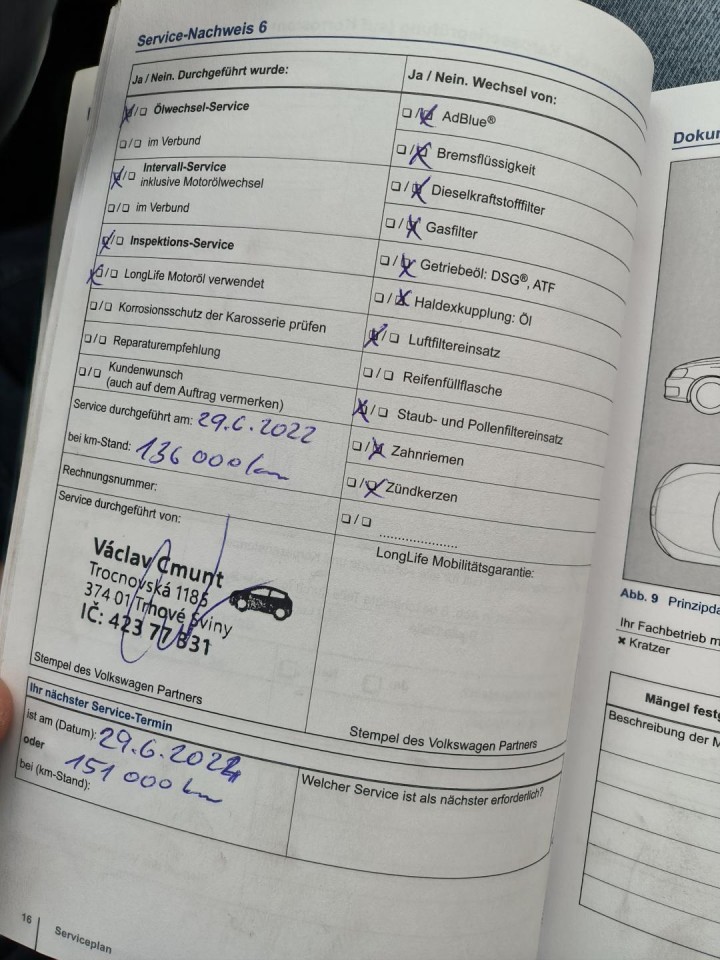 Service-Nachweis 6
Ja / Nein. Durchgeführt wurde:
Ölwechsel-Service
im Verbund
Intervall-Service
inklusive Motorölwechsel
im Verbund
Inspektions-Service
LongLife Motoröl verwendet
Korrosionsschutz der Karosserie prüfen
Reparaturempfehlung
Kundenwunsch
(auch auf dem Auftrag vermerken)
Service durchgeführt am: 29.6.2022
bei km-Stand: 136 000 km
Rechnungsnummer:
Service durchgeführt von:
Václav Cmunt
Trocnovská 1185
374 01 Trhové Sviny
IČ: 423 77 831
Stempel des Volkswagen Partners
Ja / Nein. Wechsel von:
AdBlue®
Bremsflüssigkeit
Dieselkraftstofffilter
Gasfilter
Getriebeöl: DSG®, ATF
Haldexkupplung: Öl
Luftfiltereinsatz
Reifenfüllflasche
Staub- und Pollenfiltereinsatz
Zahnriemen
Zündkerzen
....................
LongLife Mobilitätsgarantie:
Stempel des Volkswagen Partners
Ihr nächster Service-Termin
ist am (Datum): 29.6.2024
oder
bei (km-Stand): 151 000 km
Welcher Service ist als nächster erforderlich?
16
Serviceplan
Dokum
Abb. 9 Prinzipda
Ihr Fachbetrieb m
× Kratzer
Mängel festg
Beschreibung der M